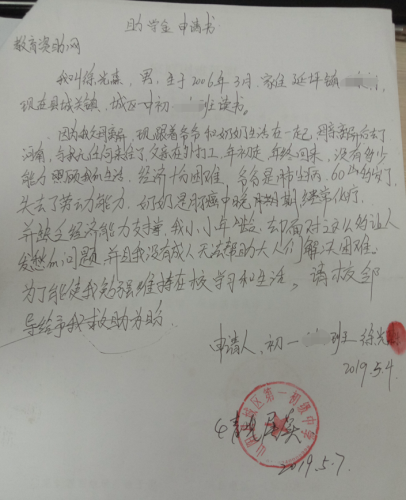 助学金申请书
教育资助网
我叫徐光森，男，生于2006年3月，家住延坪镇
现在县城关镇，城区一中初 班读书。
因为父母离异，现跟着爷爷和奶奶生活在一起，母亲离婚后去了
河南，与我无任何来往了，父亲在外打工，年初走，年终回来，没有多少
能力照顾我们生活，经济十分困难，爷爷是肺 病，60 岁的 了，
失去了劳动能力，奶奶是肝癌中晚期，经常化疗，
并缺乏经济能力支撑，我小小年龄，却面对这么的让人
发愁的问题，并且我没有成人无法帮助大人们解决困难。
为了能使我勉强维持在校学习和生活，请校领
导给予我救助为盼
申请人，初一 班 徐光
2019.5.4
情况属实
2019.5.7.
城区第一初级中学